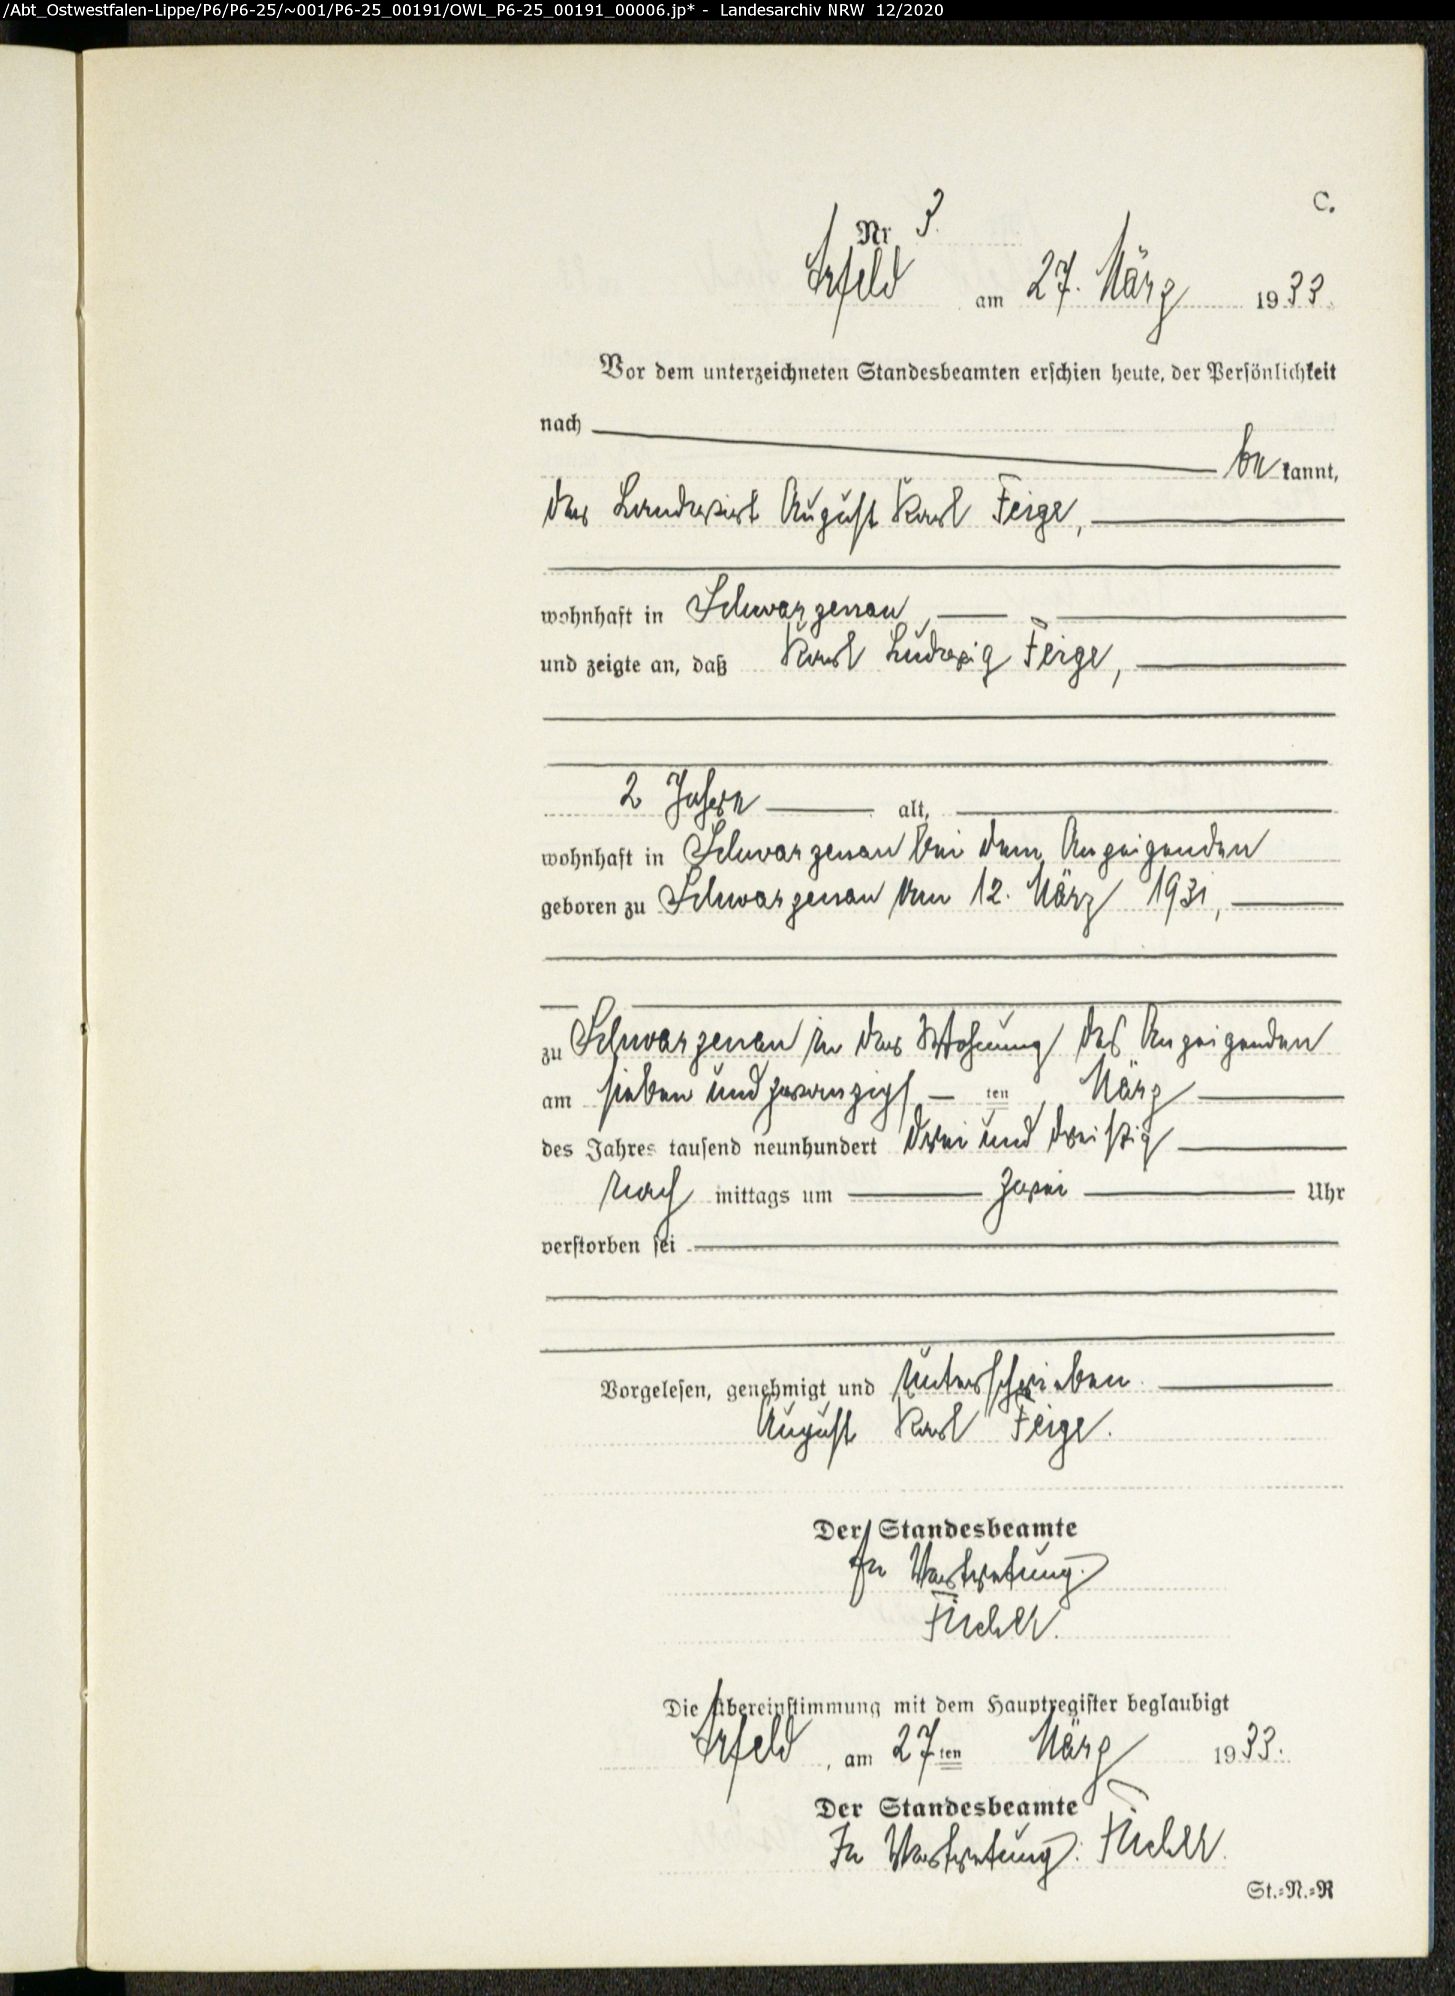 /Abt_Ostwestfalen-Lippe/P6/P6-25/~001/P6-25_00191/OWL_P6-25_00191_00006.jp* - Landesarchiv NRW 12/2020
C.
Nr 3.
Arfeld am 27. März 1933.
Vor dem unterzeichneten Standesbeamten erschien heute, der Persönlichkeit
nach
be kannt,
der Landwirt August Karl Feige,
wohnhaft in Schwarzenau,
und zeigte an, daß Karl Ludwig Feige,
2 Jahre alt,
wohnhaft in Schwarzenau bei dem Anzeigenden
geboren zu Schwarzenau am 12. März 1931,
zu Schwarzenau in der Wohnung des Anzeigenden
am sieben und zwanzigs ten März
des Jahres tausend neunhundert drei und dreißig
nach mittags um zwei Uhr
verstorben sei
Vorgelesen, genehmigt und unterschrieben.
August Karl Feige.
Der Standesbeamte
In Vertretung.
Die Übereinstimmung mit dem Hauptregister beglaubigt
Arfeld, am 27ten März 1933.
Der Standesbeamte
In Vertretung:
St.=N.=R